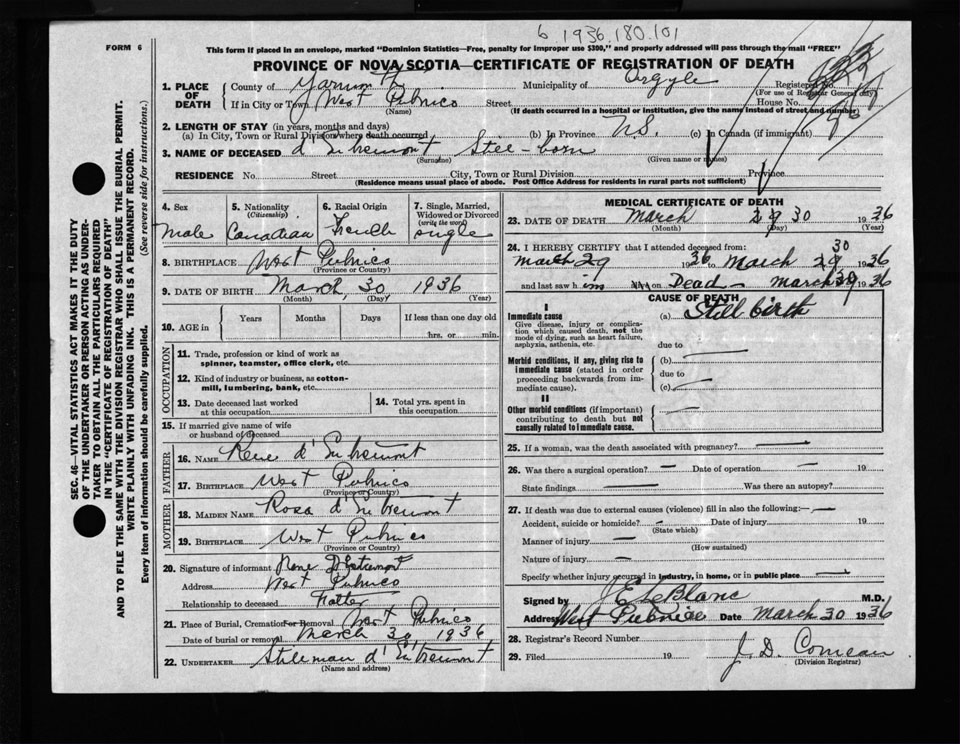 6 1936.180.101
FORM 6
This form if placed in an envelope, marked "Dominion Statistics—Free, penalty for improper use $300," and properly addressed will pass through the mail "FREE"
PROVINCE OF NOVA SCOTIA—CERTIFICATE OF REGISTRATION OF DEATH
1. PLACE OF DEATH
County of Yarmouth Municipality of Argyle Registered No.
(For use of Registrar General only)
If in City or Town West Pubnico Street House No.
(Name) (If death occurred in a hospital or institution, give the name instead of street and number)
2. LENGTH OF STAY (in years, months and days)
(a) In City, Town or Rural Division where death occurred (b) In Province N.S. (c) In Canada (if immigrant)
3. NAME OF DECEASED d'Entremont Still-born
(Surname) (Given name or names)
RESIDENCE No. Street City, Town or Rural Division Province
(Residence means usual place of abode. Post Office Address for residents in rural parts not sufficient)
4. Sex
Male
5. Nationality
(Citizenship)
Canadian
6. Racial Origin
French
7. Single, Married,
Widowed or Divorced
(write the word)
single
8. BIRTHPLACE West Pubnico
(Province or Country)
9. DATE OF BIRTH March, 30 1936
(Month) (Day) (Year)
10. AGE in Years Months Days If less than one day old
hrs. or min.
OCCUPATION
11. Trade, profession or kind of work as
spinner, teamster, office clerk, etc.
12. Kind of industry or business, as cotton-
mill, lumbering, bank, etc.
13. Date deceased last worked
at this occupation
14. Total yrs. spent in
this occupation
15. If married give name of wife
or husband of deceased
FATHER
16. NAME Rene d'Entremont
17. BIRTHPLACE West Pubnico
(Province or Country)
MOTHER
18. MAIDEN NAME Rosa d'Entremont
19. BIRTHPLACE West Pubnico
(Province or Country)
20. Signature of informant Rene D'Entremont
Address West Pubnico
Relationship to deceased Father
21. Place of Burial, Cremation or Removal West Pubnico
Date of burial or removal March 30, 1936
22. UNDERTAKER Stillman d'Entremont
(Name and address)
MEDICAL CERTIFICATE OF DEATH
23. DATE OF DEATH March 29 30 1936
(Month) (Day) (Year)
24. I HEREBY CERTIFY that I attended deceased from:
March 29 1936 to March 29 30 1936
and last saw him on Dead – March 30 1936
CAUSE OF DEATH
I
Immediate cause
Give disease, injury or complica-
tion which caused death, not the
mode of dying, such as heart failure,
asphyxia, asthenia, etc.
(a) Still birth
due to
Morbid conditions, if any, giving rise to
immediate cause (stated in order
proceeding backwards from im-
mediate cause).
(b)
due to
(c)
II
Other morbid conditions (if important)
contributing to death but not
causally related to immediate cause.
25. If a woman, was the death associated with pregnancy? —
26. Was there a surgical operation? — Date of operation — 19
State findings — Was there an autopsy?
27. If death was due to external causes (violence) fill in also the following:— —
Accident, suicide or homicide? – Date of injury 19
(State which)
Manner of injury —
(How sustained)
Nature of injury —
Specify whether injury occurred in industry, in home, or in public place —
Signed by J E LeBlanc M.D.
Address West Pubnico Date March 30 1936
28. Registrar's Record Number
29. Filed 19 J. D. Comeau
(Division Registrar)
SEC. 46—VITAL STATISTICS ACT MAKES IT THE DUTY
OF THE UNDERTAKER OR PERSON ACTING AS UNDER-
TAKER TO OBTAIN ALL THE PARTICULARS REQUIRED
IN THE "CERTIFICATE OF REGISTRATION OF DEATH"
AND TO FILE THE SAME WITH THE DIVISION REGISTRAR WHO SHALL ISSUE THE BURIAL PERMIT.
WRITE PLAINLY WITH UNFADING INK. THIS IS A PERMANENT RECORD.
Every item of information should be carefully supplied. (See reverse side for instructions.)